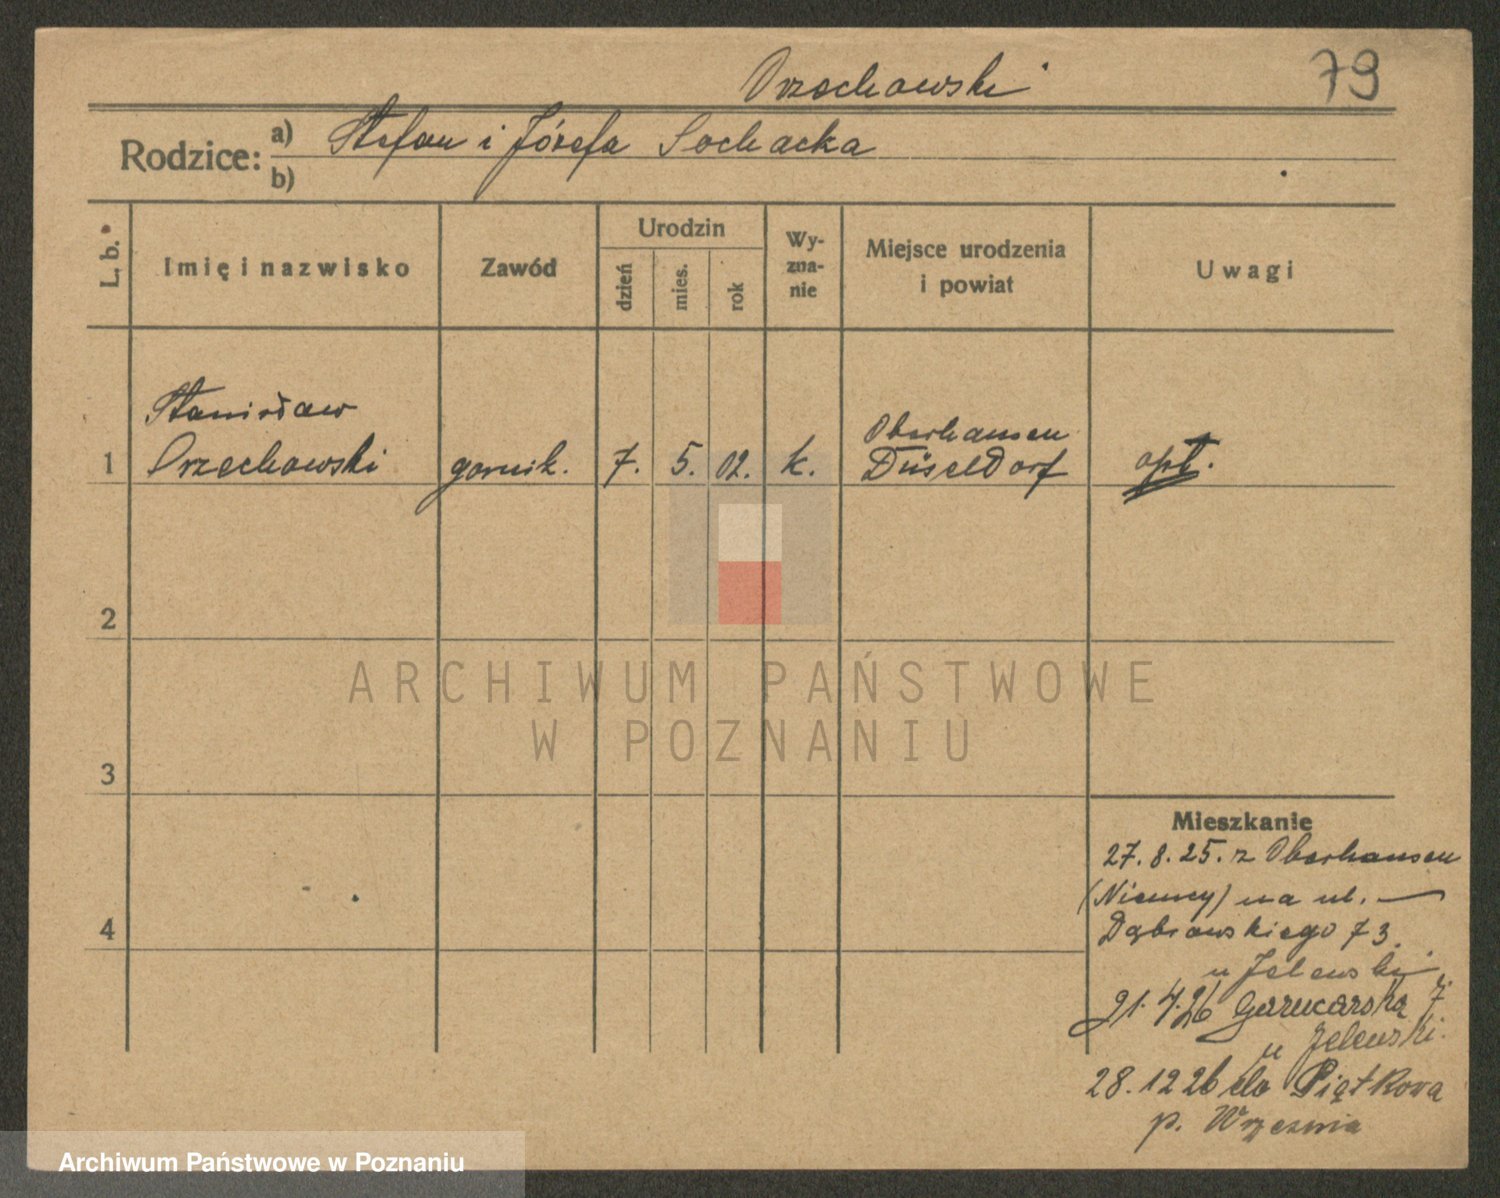 Orzechowski
79
Rodzice: a) Stefan i Józefa Sochacka
b)
L. b.
Imię i nazwisko
Zawód
Urodzin
dzień
mies.
rok
Wy-
zna-
nie
Miejsce urodzenia
i powiat
Uwagi
Stanisław
1 Orzechowski gornik. 7. 5. 02. k. Oberhausen
Düseldorf opt.
2
3
4
Mieszkanie
27.8.25. z Oberhausen
(Niemcy) na ul. —
Dąbrowskiego 73
u Jelewski
21.4.26 Garncarska 7.
u Jelewski.
28.12 26 do Piątkowa
p. Września
ARCHIWUM PAŃSTWOWE
W POZNANIU
Archiwum Państwowe w Poznaniu